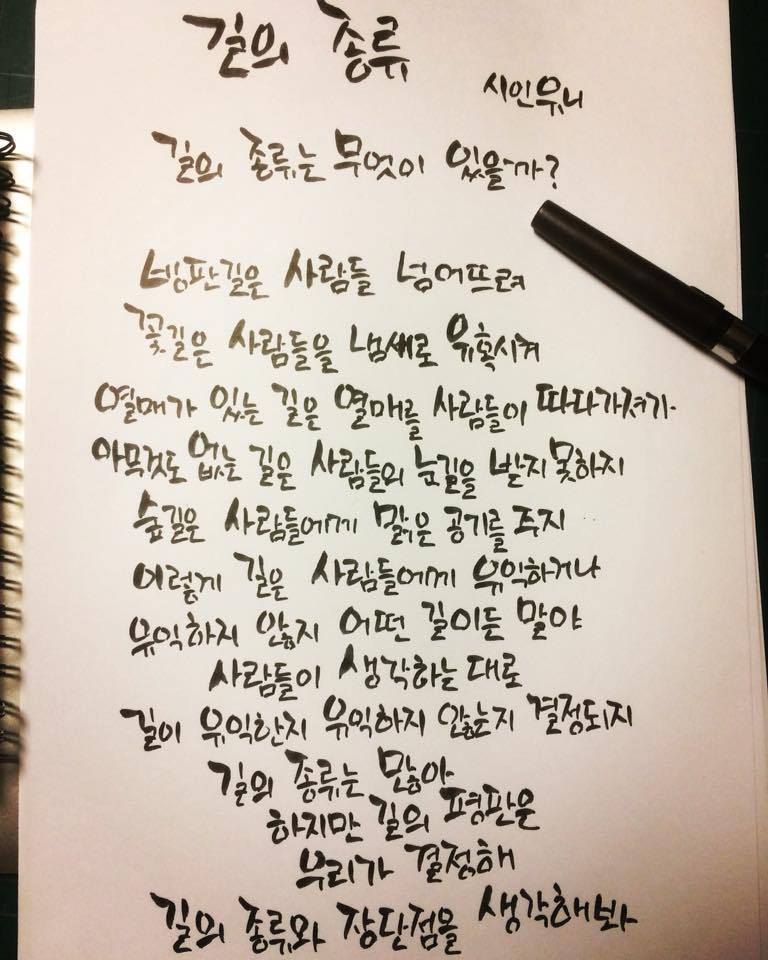 길의 종류
시인유니
길의 종류는 무엇이 있을까?
빙판길은 사람들 넘어뜨려
꽃길은 사람들을 냄새로 유혹시켜
열매가 있는 길은 열매를 사람들이 따다가져가
아무것도 없는 길은 사람들의 눈길을 받지 못하지
숲길은 사람들에게 맑은 공기를 주지
이렇게 길은 사람들에게 유익하거나
유익하지 않지 어떤 길이든 말야
사람들이 생각하는 대로
길이 유익한지 유익하지 않는지 결정되지
길의 종류는 많아
하지만 길의 평판은
우리가 결정해
길의 종류와 장단점을 생각해봐